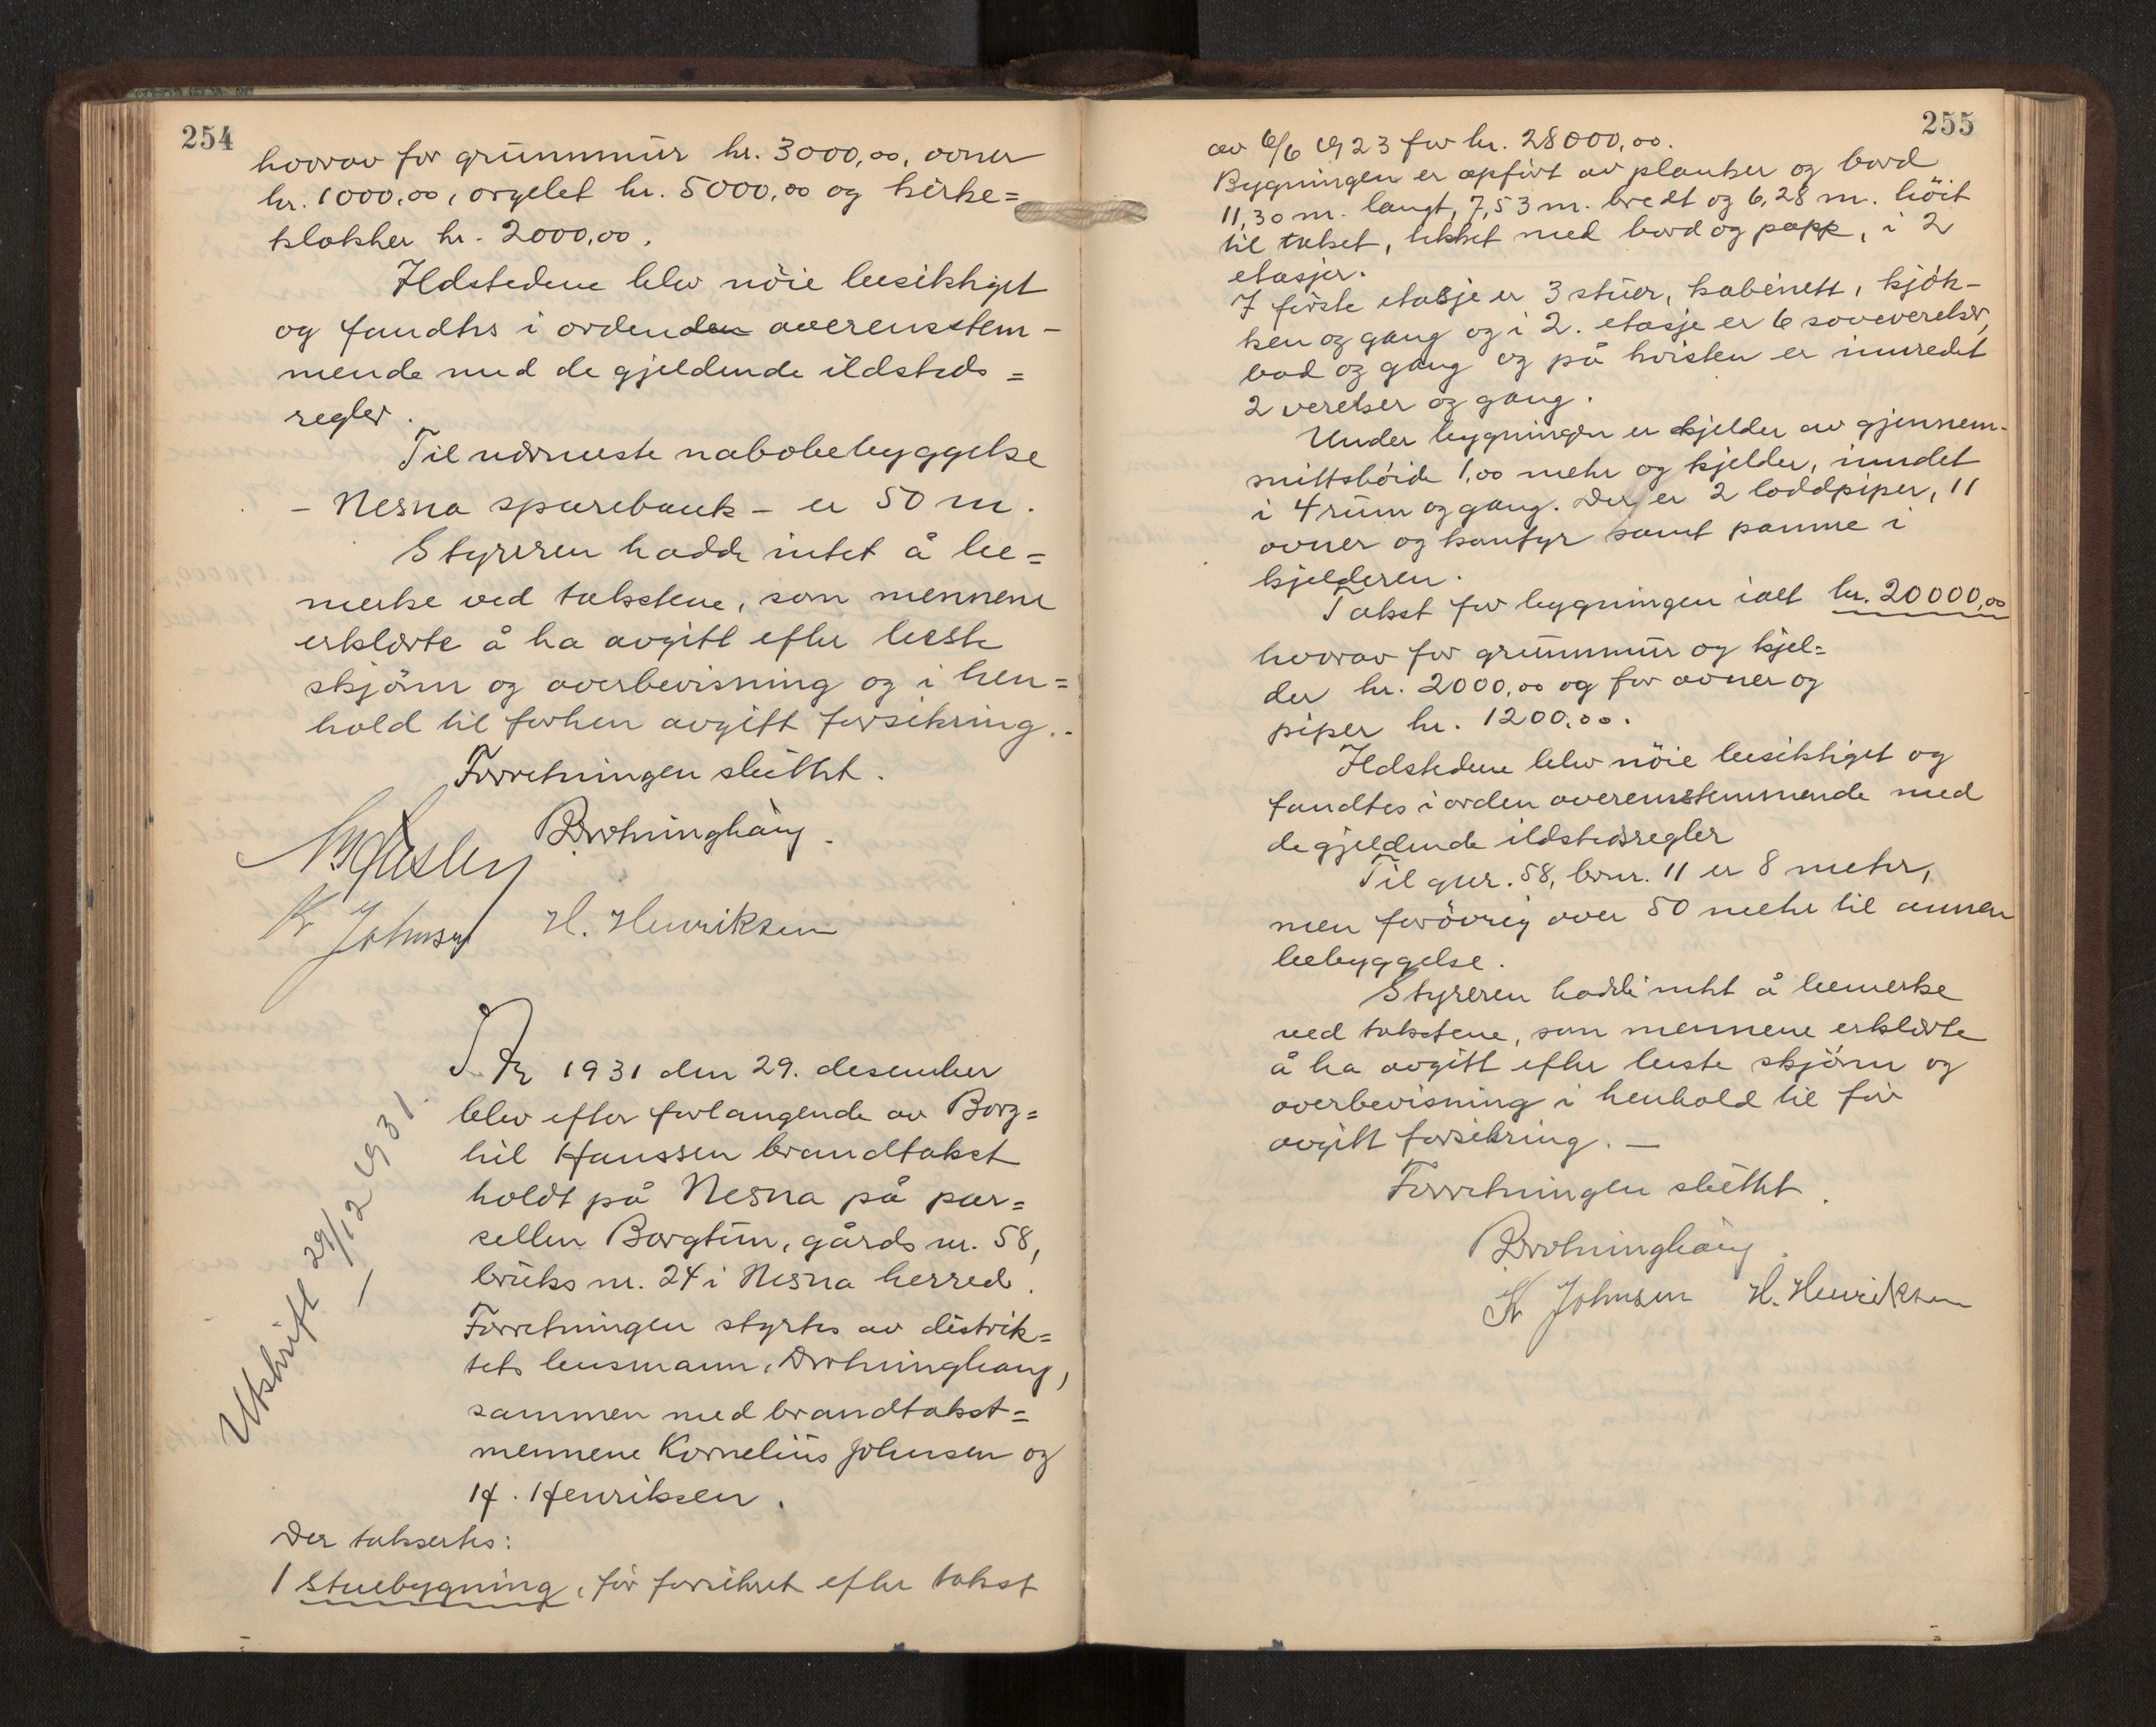 254
hvorav for grunnmur kr. 3000,00, ovner
kr. 1000,00, orgelet kr. 5000,00 og kirke=
klokker kr. 2000,00.
Ildstedene blev nöie besiktiget
og fandtes i orden den overensstem-
mende med de gjeldende ildsteds=
regler.
Til nærmeste nabobebyggelse
- Nesna sparebank - er 50 m.
Styreren hadde intet å be=
merke ved takstene, som mennene
erklærte å ha avgitt efter beste
skjönn og overbevisning og i hen=
hold til forhen avgitt forsikring.-
Forretningen sluttet.
Dr̲o̲h̲n̲i̲n̲g̲haug.
K Johnsen H. Henriksen
Utskrift 29/12 1931.
År 1931 den 29. desember
blev efter forlangende av Borg=
hil Hanssen brandtakst
holdt på Nesna på par=
sellen Borgtun, gårds nr. 58,
bruks nr. 24 i Nesna herred.
Forretningen styrtes av distrik=
tets lensmann, Drohninghaug,
sammen med brandtakst=
mennene Kornelius Johnsen og
H. Henriksen.
Der taksertes:
1 Stuebygning, för forsikret efter takst
255
av 6/6 1923 for kr. 28000,00.
Bygningen er opfört av planker og bord
11,30 m. langt, 7,53 m. bredt og 6,28 m. höit
til taket, tekket med bord og papp, i 2
etasjer.
I förste etasje er 3 stuer, kabinett, kjök-
ken og gang og i 2. etasje er 6 soveverelser,
bad og gang og på kvisten er innredet
2 verelser og gang.
Under bygningen er kjelder av gjennem-
snittshöide 1,00 meter og kjelder, inndelt
i 4 rum og gang. Der er 2 loddpiper, 11
ovner og komfyr samt panne i
kjelderen.
Takst for bygningen ialt kr. 20000,00
hvorav for grunnmur og kjel=
der kr. 2000,00 og for ovner og
piper kr. 1200,00.
Ildstedene blev nöie besiktiget og
fandtes i orden overensstemmende med
de gjeldende ildstedsregler
Til gnr. 58, bnr. 11 er 8 meter,
men forövrig over 50 meter til annen
bebyggelse.
Styreren hadde intet å bemerke
ved takstene, som mennene erklærte
å ha avgitt efter beste skjönn og
overbevisning i henhold til för
avgitt forsikring. -
Forretningen sluttet.
Drohninghaug.
K Johnsen H. Henriksen